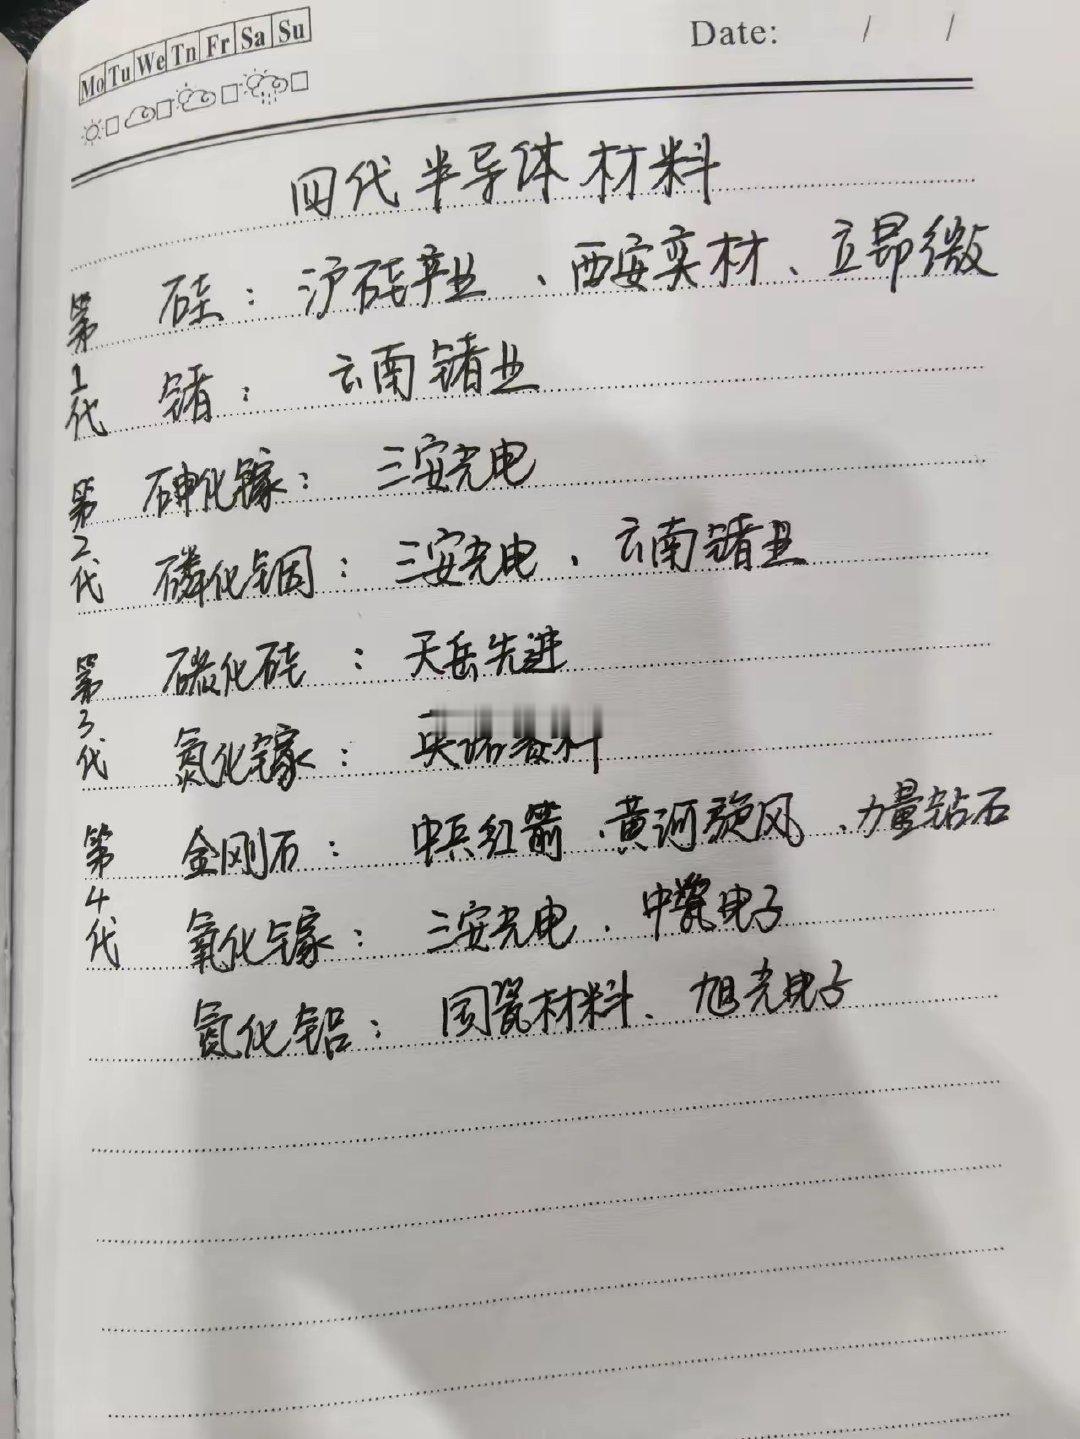 Mo Tu We Tn Fr Sa Su
Date: / /
四代半导体材料
第1代
硅：沪硅产业、西安奕材、立昂微
锗：云南锗业
第2代
砷化镓：三安光电
磷化铟：三安光电、云南锗业
第3代
碳化硅：天岳先进
氮化镓：
第4代
金刚石：中兵红箭、黄河旋风、力量钻石
氧化镓：三安光电、中瓷电子
氮化铝：国瓷材料、旭光电子